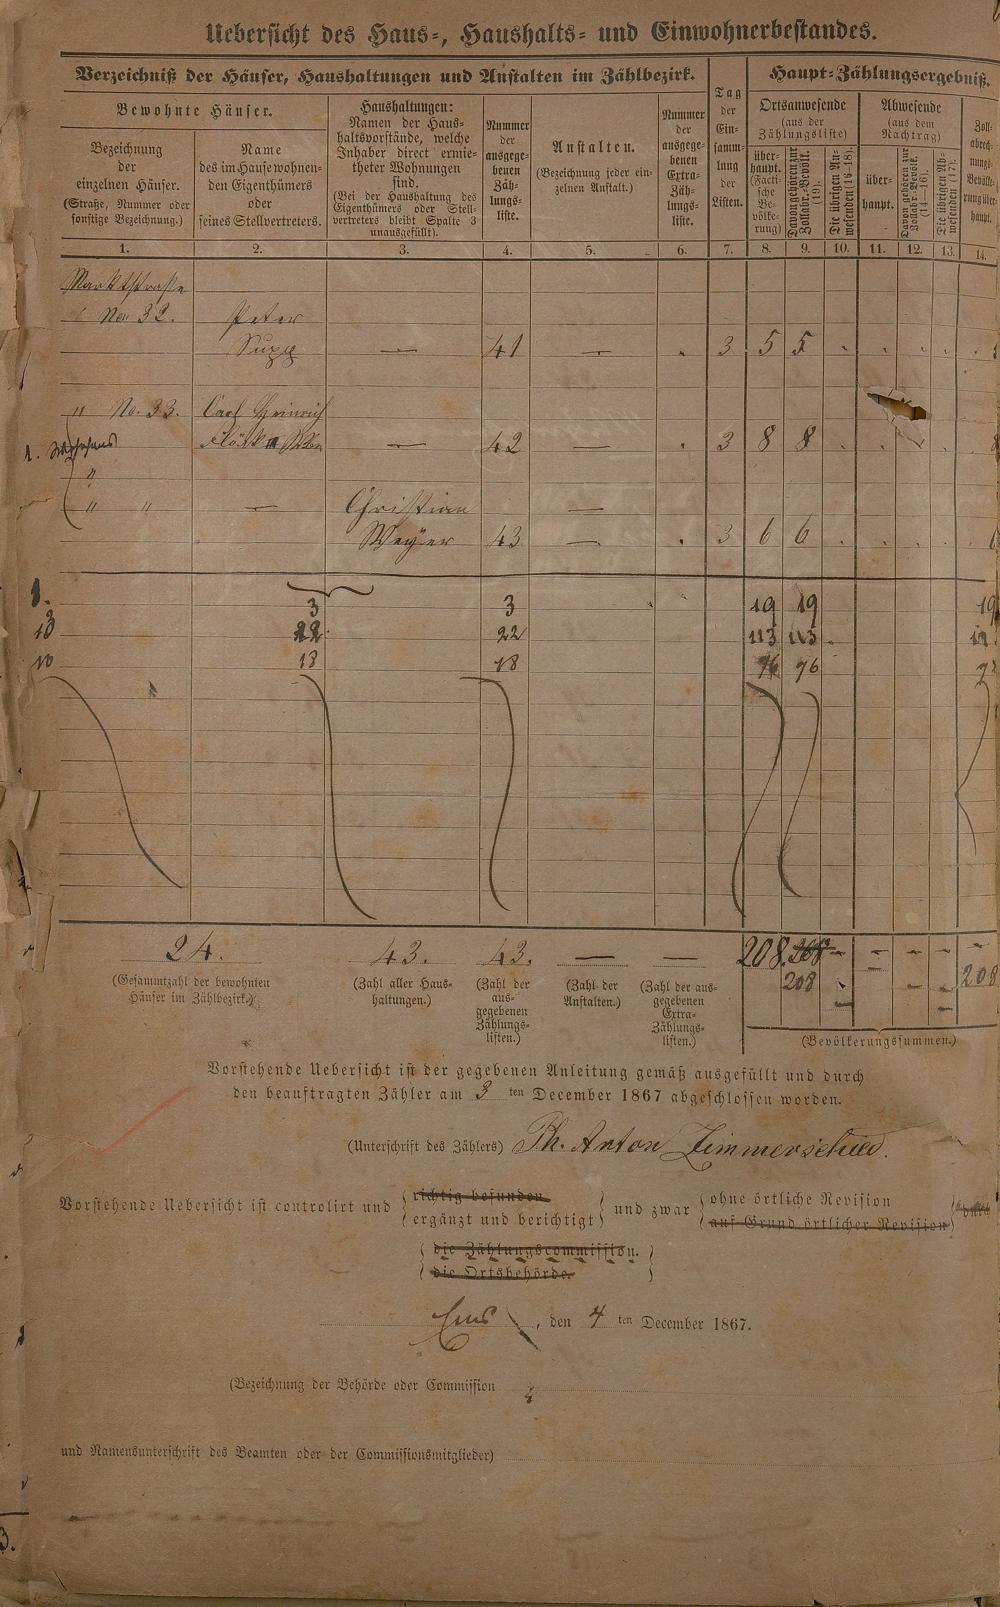 Uebersicht des Haus-, Haushalts- und Einwohnerbestandes.
Verzeichniß der Häuser, Haushaltungen und Anstalten im Zählbezirk.
Tag der Ein-samm-lung der Listen.
Haupt-Zählungsergebniß.
Bewohnte Häuser.
Bezeichnung
der
einzelnen Häuser.
(Straße, Nummer oder
sonstige Bezeichnung.)
Name
des im Hause wohnen-
den Eigenthümers
oder
seines Stellvertreters.
Haushaltungen:
Namen der Haus-
haltsvorstände, welche
Inhaber direct ermie-
theter Wohnungen
sind.
(Bei der Haushaltung des
Eigenthümers oder Stell-
vertreters bleibt Spalte 3
unausgefüllt).
Nummer
der
ausgege-
benen
Zäh-
lungs-
liste.
Anstalten.
(Bezeichnung jeder ein-
zelnen Anstalt.)
Nummer
der
ausgege-
benen
Extra-
Zäh-
lungs-
liste.
Ortsanwesende
(aus der
Zählungsliste)
über-
haupt.
(Facti-
sche
Be-
völke-
rung)
Davon gehören zur
Zollabr.-Bevölk.
(19).
Die übrigen An-
wesenden (16–18).
Abwesende
(aus dem
Nachtrag)
über-
haupt.
Davon gehören zur
Zollabr.-Bevölk.
(14–16).
Die übrigen Ab-
wesenden (17).
Zoll-
abrech-
nungs-
Bevölke-
rung über-
haupt.
1. 2. 3. 4. 5. 6. 7. 8. 9. 10. 11. 12. 13. 14.
Marktstraße
No. 32. Peter
Supp — 41 — . 3 5 5 . . . . .
" No. 33. Carl Heinrich
— 42 — . 3 8 8 . . . . 8
"
" " — Christian —
Meyer 43 — . 3 6 6 . . . . 6
3 3 19 19 19
22 22 113 113
10 18 18 76 76
24. 43. 43. — — 208. 208 - - - - -
208 208
(Gesammtzahl der bewohnten
Häuser im Zählbezirk.)
(Zahl aller Haus-
haltungen.)
(Zahl der
aus-
gegebenen
Zählungs-
listen.)
(Zahl der
Anstalten.)
(Zahl der aus-
gegebenen
Extra-
Zählungs-
listen.)
(Bevölkerungssummen.)
Vorstehende Uebersicht ist der gegebenen Anleitung gemäß ausgefüllt und durch
den beauftragten Zähler am 3 ten December 1867 abgeschlossen worden.
(Unterschrift des Zählers) Ph. Anton Zimmerschied.
Vorstehende Uebersicht ist controlirt und { richtig befunden / ergänzt und berichtigt } und zwar { ohne örtliche Revision / auf Grund örtlicher Revision } durch
die Zählungscommission.
die Ortsbehörde.
Ems, den 4 ten December 1867.
(Bezeichnung der Behörde oder Commission
und Namensunterschrift des Beamten oder der Commissionsmitglieder)